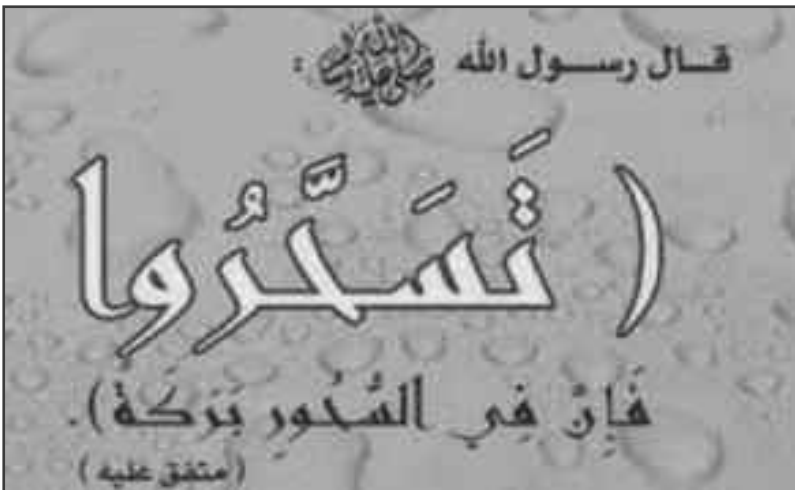 قال رسول الله ﷺ :
( تَسَحَّرُوا
فَإِنَّ فِي السُّحُورِ بَرَكَةً ).
( متفق عليه )